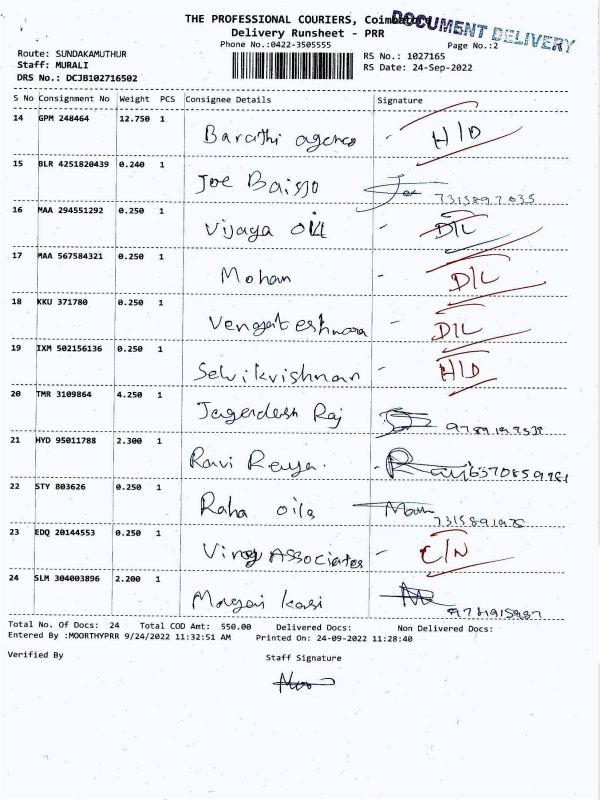 THE PROFESSIONAL COURIERS, Coimbatore
DOCUMENT DELIVERY
Delivery Runsheet - PRR
Phone No.:0422-3505555
Page No.:2
Route: SUNDAKAMUTHUR
RS No.: 1027165
Staff: MURALI
RS Date: 24-Sep-2022
DRS No.: DCJB102716502
S No Consignment No Weight PCS Consignee Details Signature
14 GPM 248464 12.750 1 Barathi agency - H/D
15 BLR 4251820439 0.240 1 Joe Joe
16 MAA 294551292 0.250 1 Vijaya oil - D/L
17 MAA 567584321 0.250 1 Mohan - D/L
18 KKU 371780 0.250 1 - D/L
19 IXM 502156136 0.250 1 Selvikrishnan - H/D
20 TMR 3109864 4.250 1 Raj
21 HYD 95011788 2.300 1 Ravi - Ravi
22 STY 803626 0.250 1 Raha oils
23 EDQ 20144553 0.250 1 Associates - C/N
24 SLM 304003896 2.200 1
Total No. Of Docs: 24 Total COD Amt: 550.00 Delivered Docs: Non Delivered Docs:
Entered By :MOORTHYPRR 9/24/2022 11:32:51 AM Printed On: 24-09-2022 11:28:40
Verified By Staff Signature